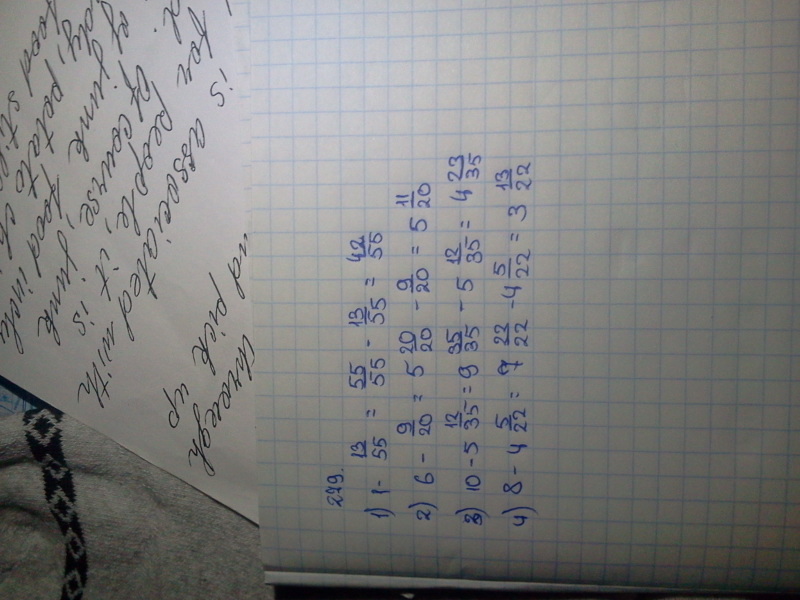 279.
1) 1 - 13/55 = 55/55 - 13/55 = 42/55
2) 6 - 9/20 = 5 20/20 - 9/20 = 5 11/20
3) 10 - 5 12/35 = 9 35/35 - 5 12/35 = 4 23/35
4) 8 - 4 5/22 = 7 22/22 - 4 5/22 = 3 13/22
through
pick up
is associated with
people, it is
Of course, junk
of junk food
potato
food